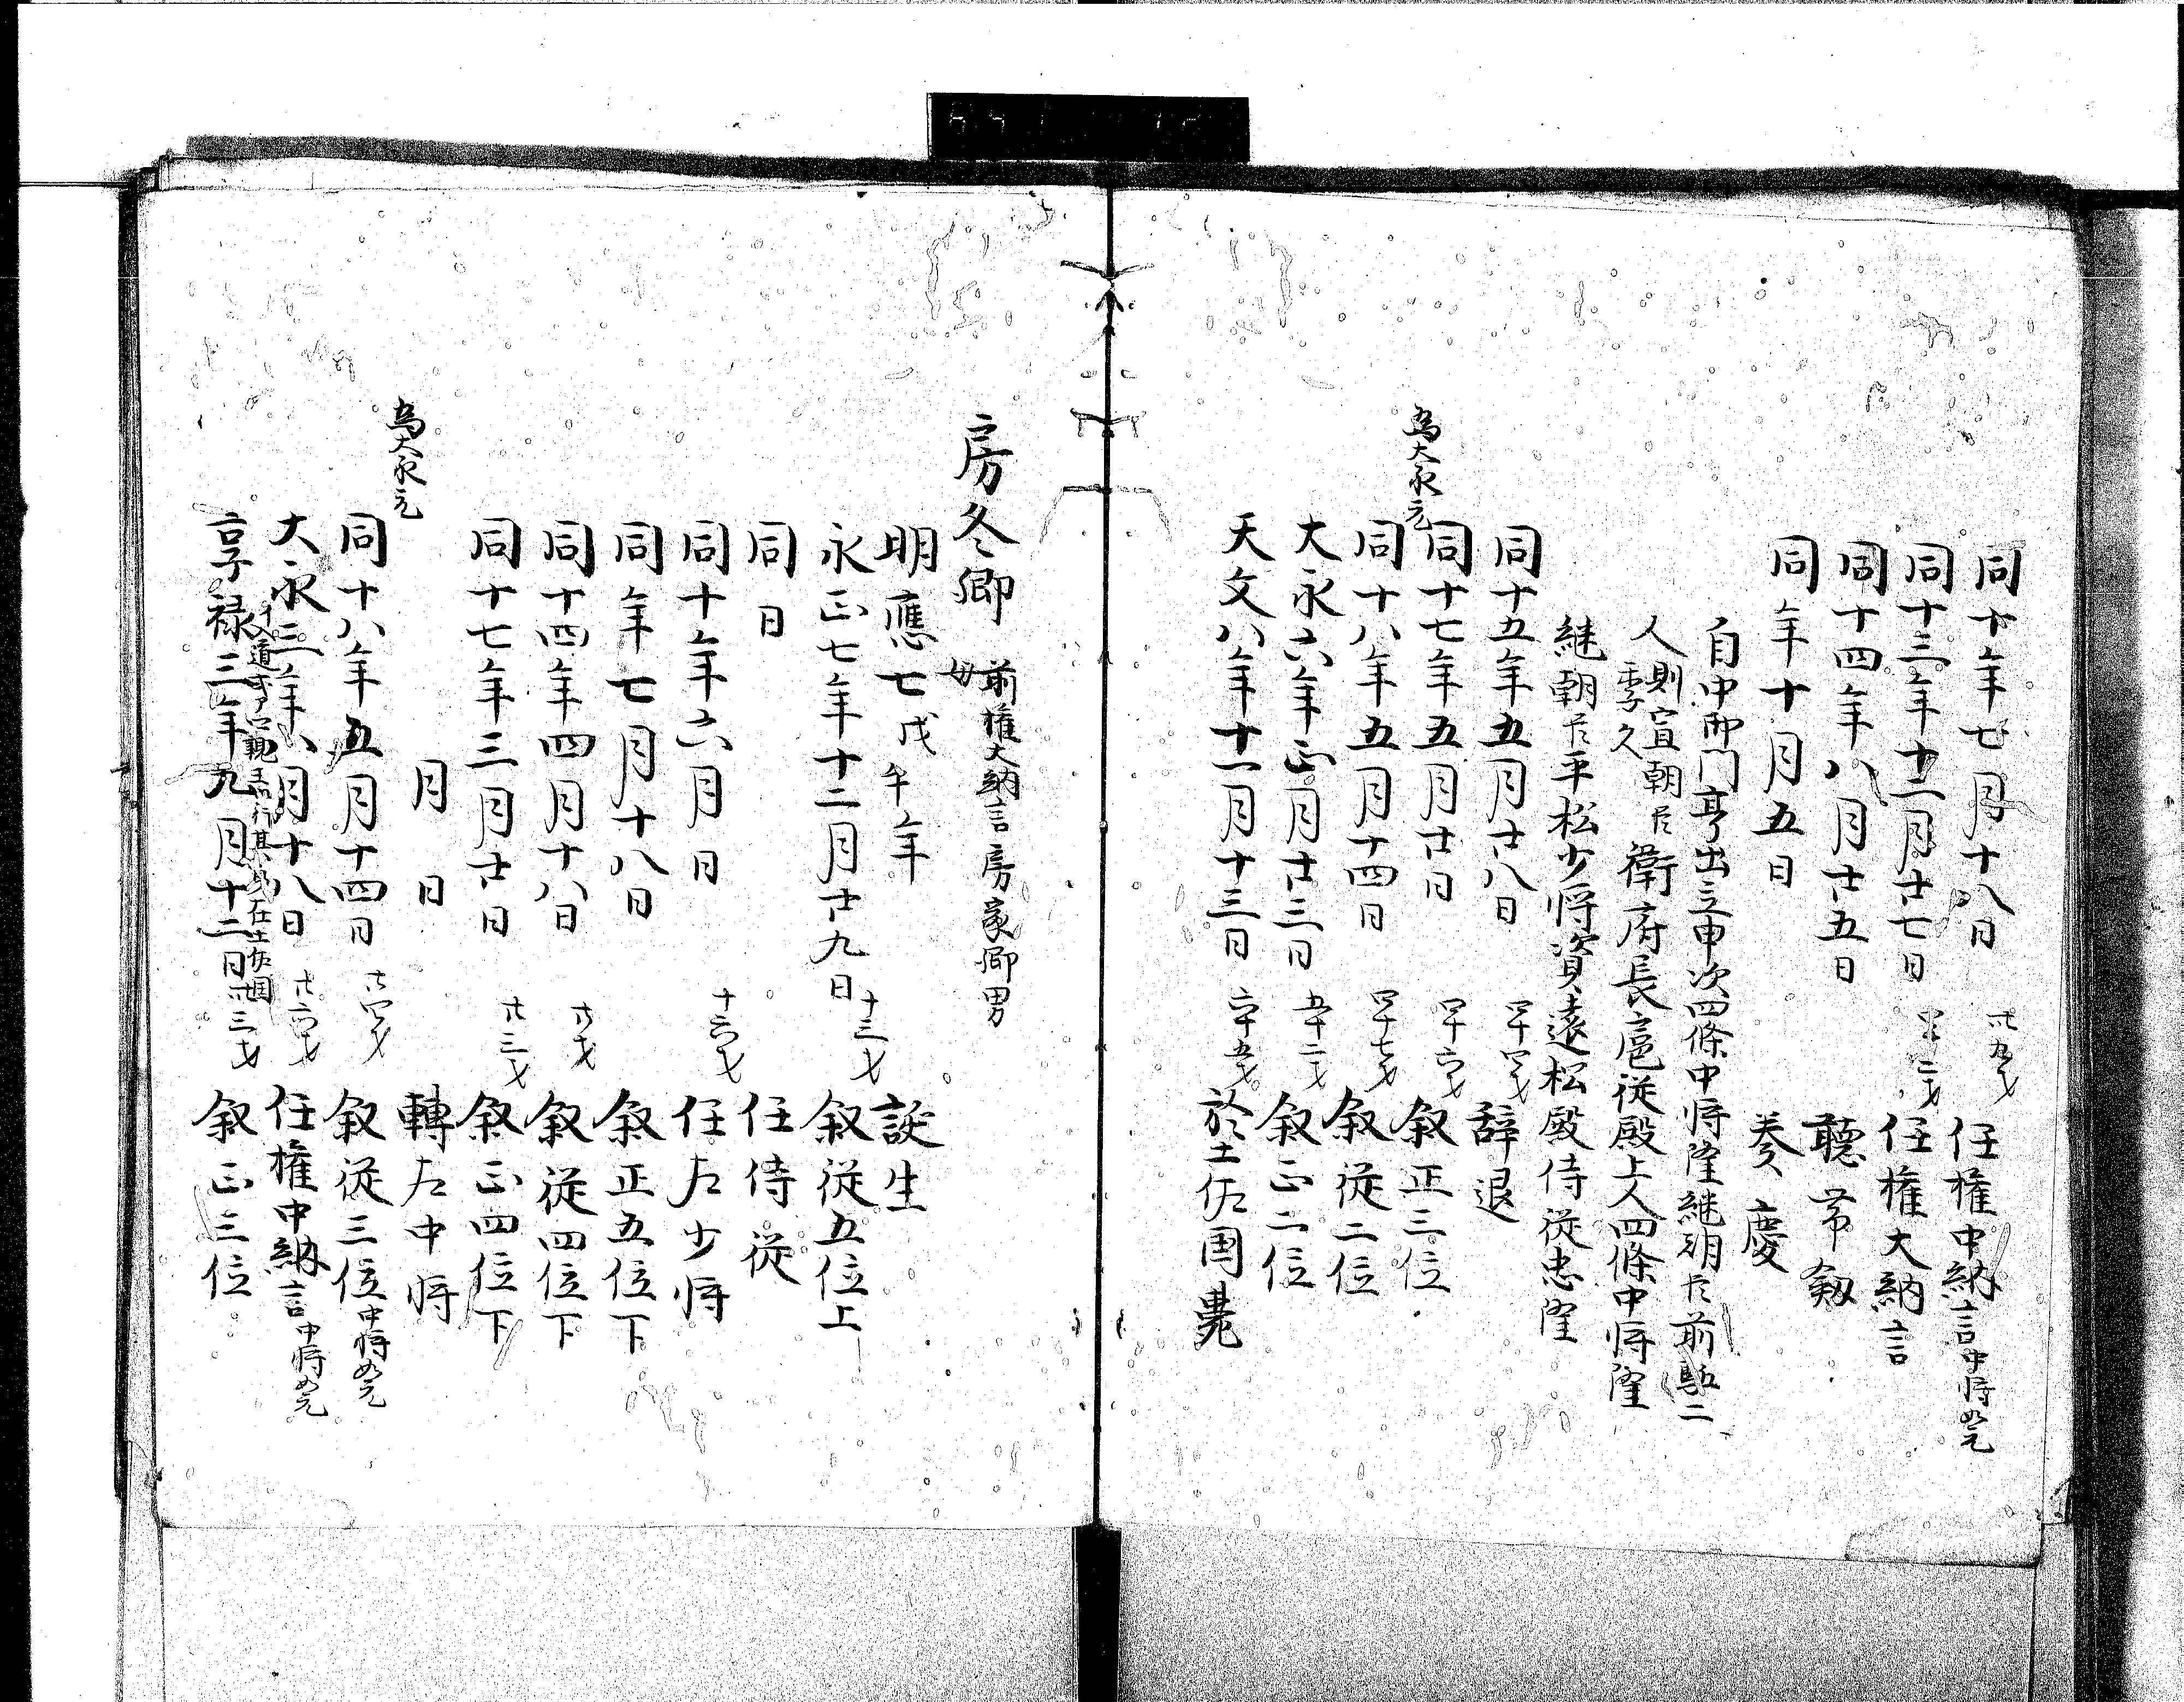 同十年七月十八日 卅九才 任権中納言中将如元
同十三年十二月廿七日 四十二才 任権大納言
同十四年八月廿五日 聴帯剱
同年十月五日 奏慶
自中御門亭出立申次四條中将隆継朝臣前駈二
人則宣朝臣季久衛府長扈従殿上人四條中将隆
継朝臣平松少将資遠松殿侍従忠隆
同十五年五月廿八日 四十四才 辞退
同十七年五月廿日 四十六才 叙正三位
為大永元
同十八年五月十四日 四十七才 叙従二位
大永六年正月廿三日 五十二才 叙正二位
天文八年十一月十三日 六十五才 於土佐国薨
房冬卿 前権大納言房家卿男
母
明應七戊午年 誕生
永正七年十二月廿九日 十三才 叙従五位上
同日 任侍従
同十年六月 日 十六才 任左少将
同年七月十八日 叙正五位下
同十四年四月十八日 廿才 叙従四位下
同十七年三月廿日 廿三才 叙正四位下
月 日 轉左中将
為大永元
同十八年五月十四日 廿四才 叙従三位中将如元
大永三年八月十八日 廿六才 任権中納言中将如元
入道 親王 行其 在土佐国
享禄三年九月十二日 卅三才 叙正三位